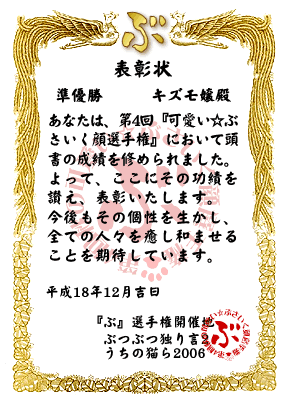 ぶ
表彰状
準優勝 キズモ嬢殿
あなたは、第4回『可愛い☆ぶ
さいく顔選手権』において頭
書の成績を修められました。
よって、ここにその功績を
讃え、表彰いたします。
今後もその個性を生かし、
全ての人々を癒し和ませる
ことを期待しています。
平成18年12月吉日
『ぶ』選手権開催地
ぶつぶつ独り言2
うちの猫ら2006
ぶ